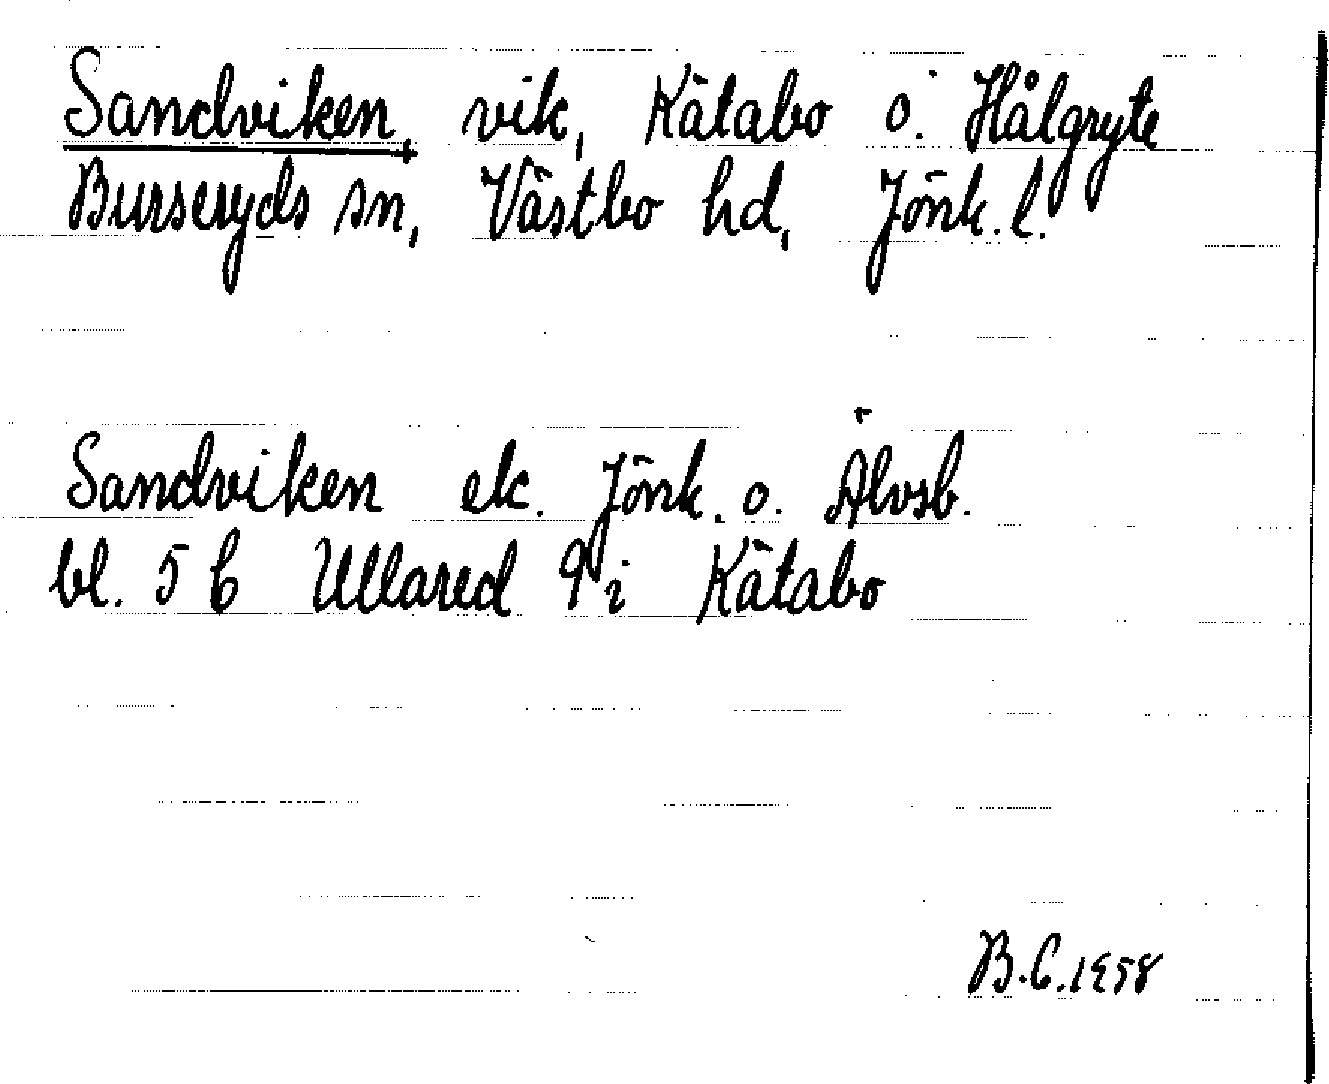 Sandviken, vik, Kätabo o. Hålgryte
Burseryds sn, Västbo hd, Jönk. l.
Sandviken ek. Jönk. o. Älvsb.
bl. 5 b Ullared 9 i Kätabo
B.C. 1958